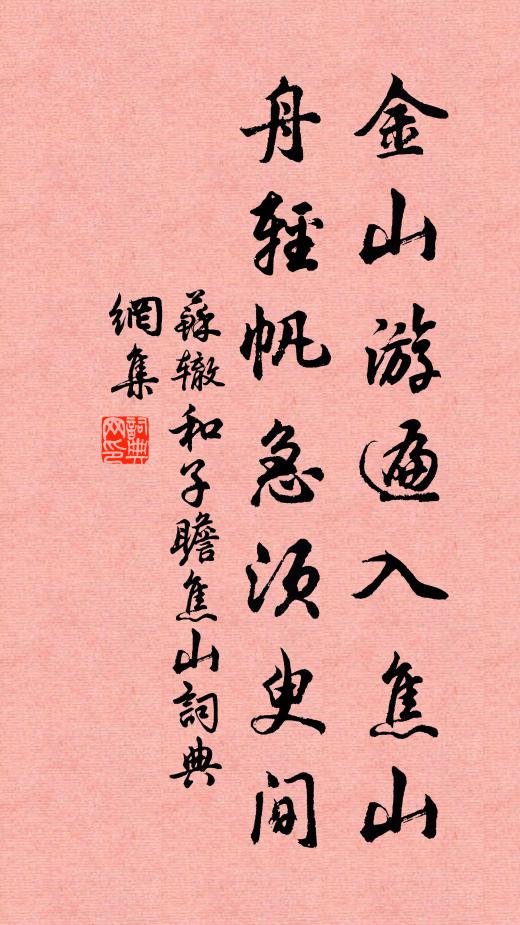 金山游遍入焦山
舟輕帆急須臾間
蘇辙和子瞻焦山詞典
網集
詞典
网印